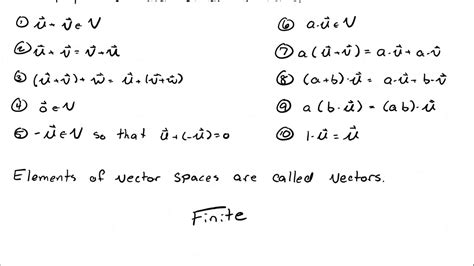 ① u⃗ + v⃗ ∈ V
② u⃗ + v⃗ = v⃗ + u⃗
③ (u⃗ + v⃗) + w⃗ = u⃗ + (v⃗ + w⃗)
④ 0⃗ ∈ V
⑤ -u⃗ ∈ V so that u⃗ + (-u⃗) = 0
⑥ a·u⃗ ∈ V
⑦ a(u⃗ + v⃗) = a·u⃗ + a·v⃗
⑧ (a+b)·u⃗ = a·u⃗ + b·v⃗
⑨ a(b·u⃗) = (ab)·u⃗
⑩ 1·u⃗ = u⃗
Elements of vector spaces are called vectors.
Finite